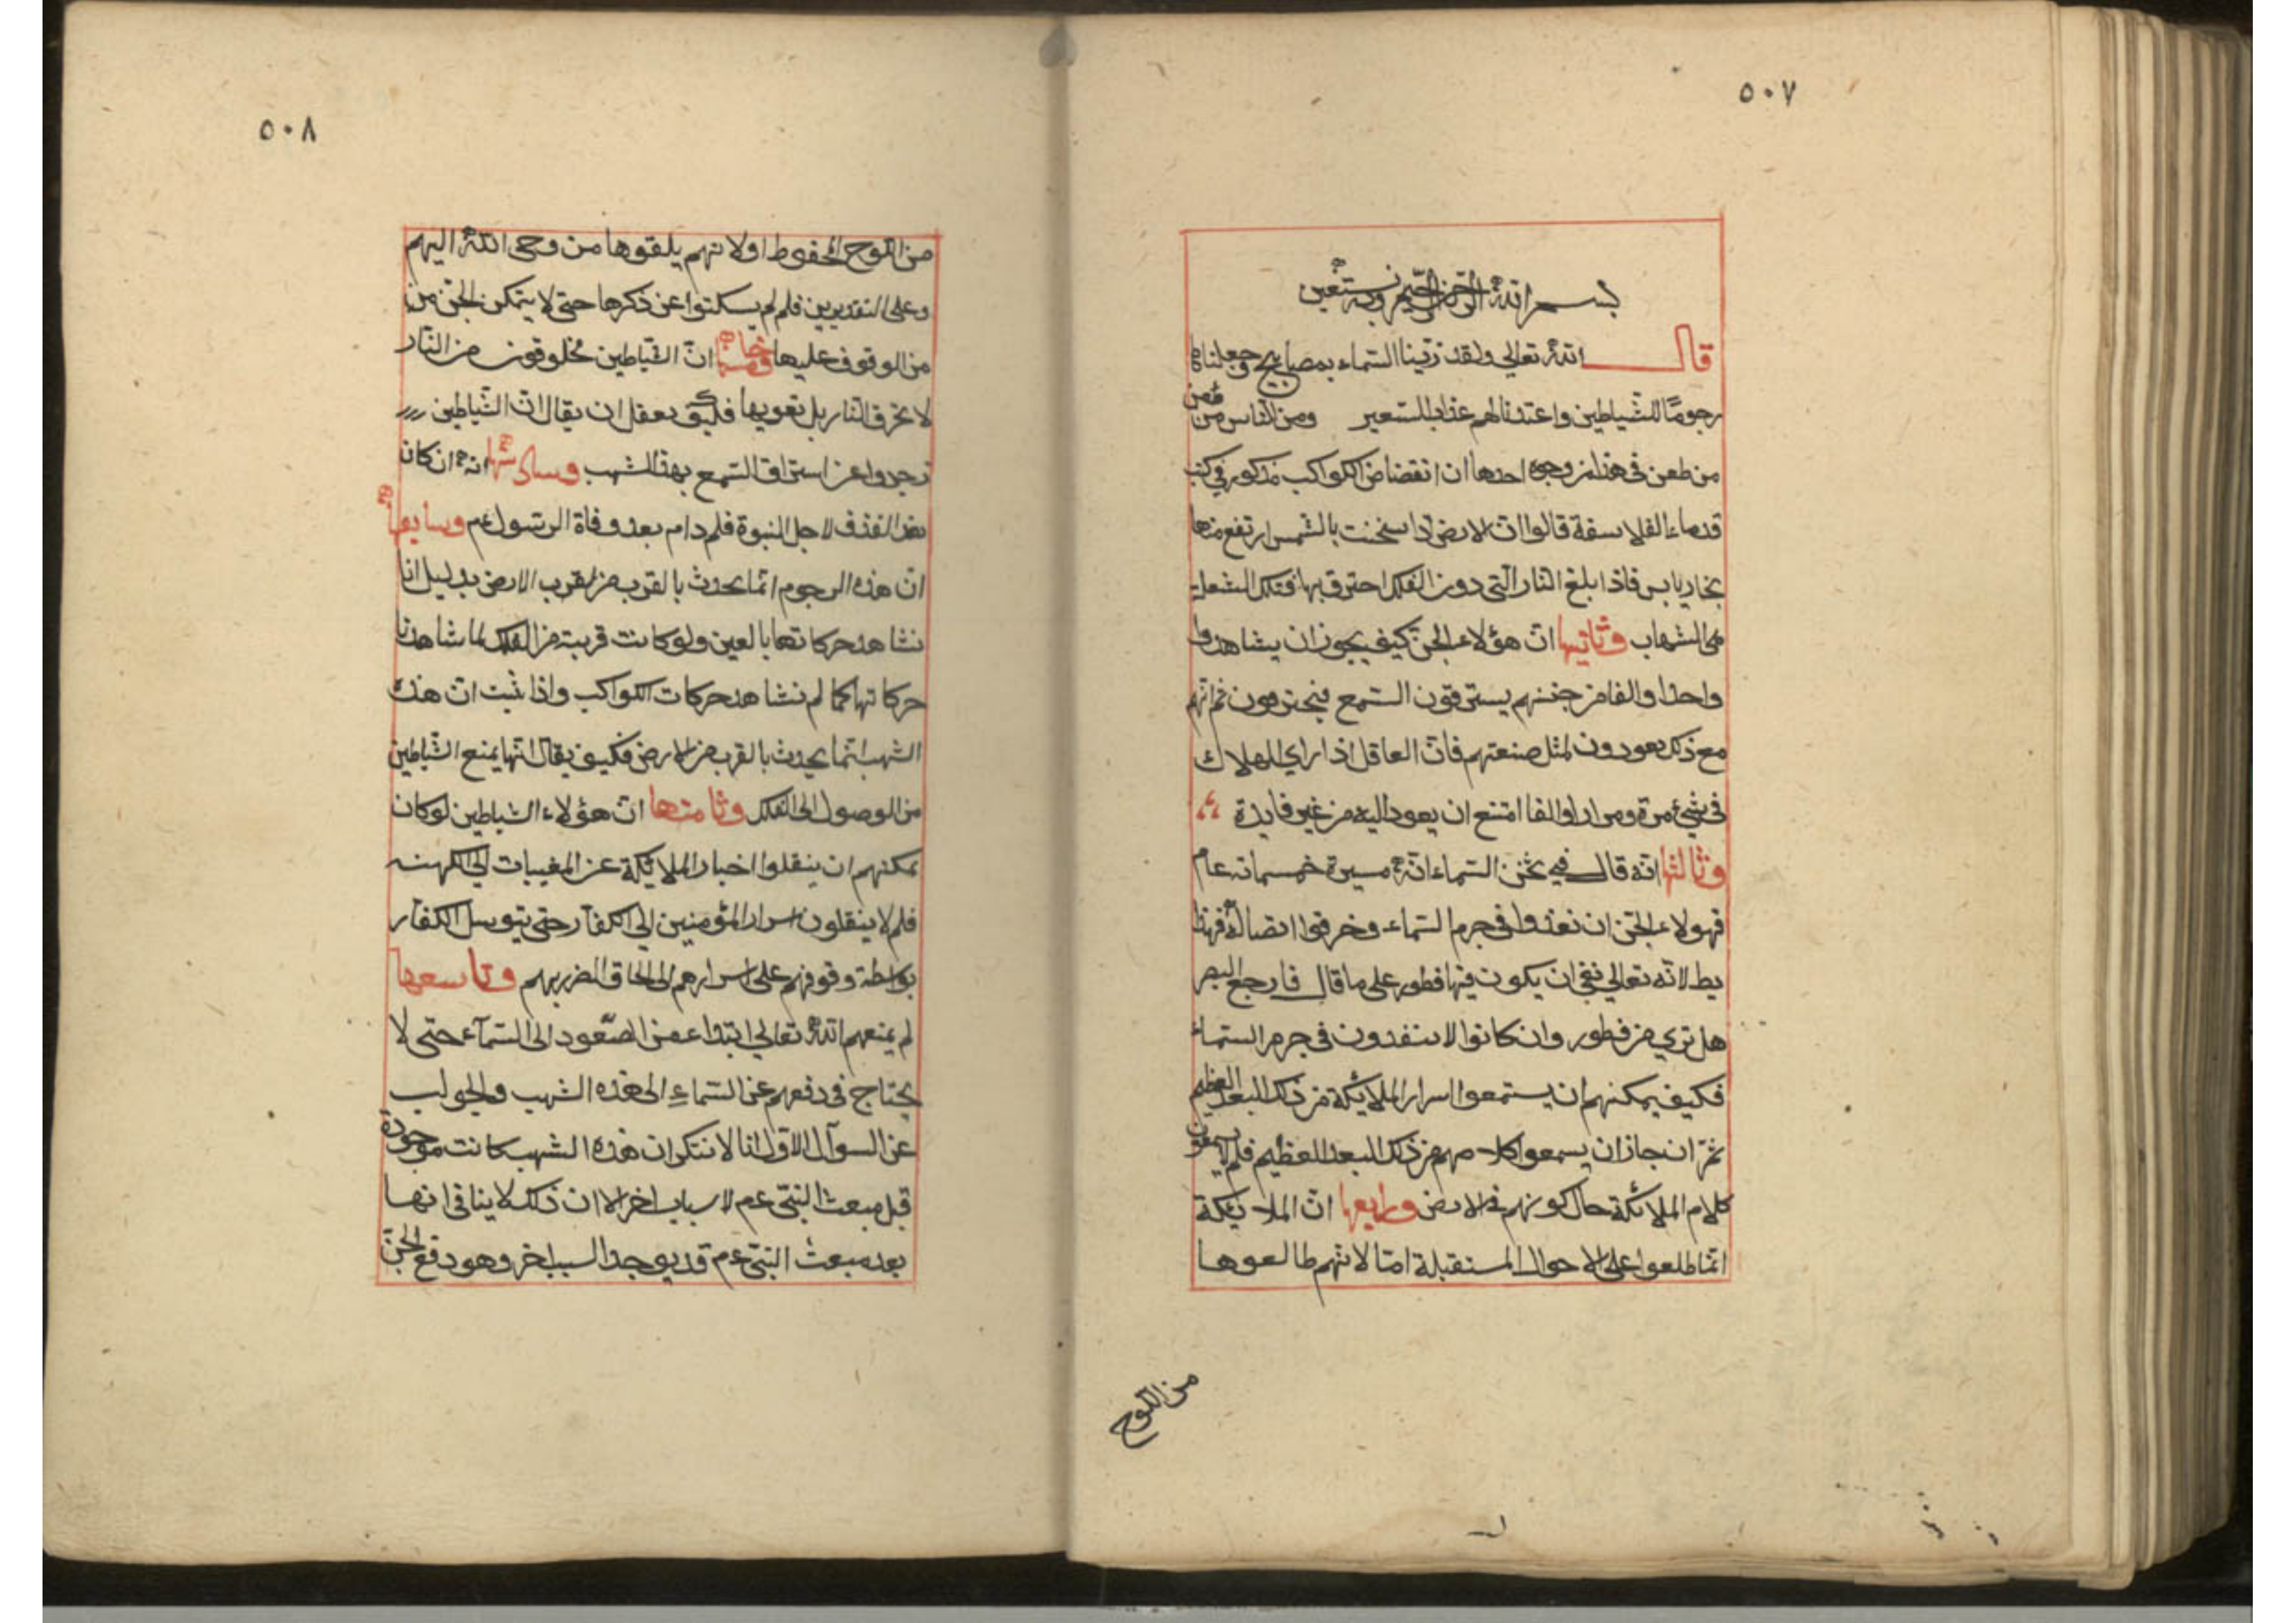 ٥٠٧
بسم الله الرحمن الرحيم وبه نستعين
قال الله تعالى ولقد زينا السماء بمصابيح وجعلناها
رجوما للشياطين واعتدنا لهم عذاب السعير ومن الناس من
من طعن في هذا من وجوه احدها ان انقضاض الكواكب مذكور في كتب
قدماء الفلاسفة قالوا ان الارض اذا سخنت بالشمس ارتفع منها
بخار يابس فاذا بلغ النار التي دون الفلك احترق بها فتلك الشعلة
هي الشهاب وثانيها ان هؤلاء الجن كيف يجوز ان يشاهدوا
واحدا والفا من جنسهم يسترقون السمع فيحترقون ثم انهم
مع ذلك يعودون لمثل صنعتهم فان العاقل اذا راي الهلاك
في شيء مرة ومرارا والفا امتنع ان يعود اليه من غير فايدة
وثالثها انه قال في ثخن السماء انه مسيرة خمسمائة عام
فهولاء الجن ان نفذوا في جرم السماء وخرقوا اتصاله فهذا
يط لانه تعالي نفي ان يكون فيها فطور على ما قال فارجع البصر
هل تري من فطور وان كانوا لا ينفدون في جرم السماء
فكيف يمكنهم ان يستمعوا اسرار الملائكة من ذلك البعد العظيم
ثم ان جاز ان يسمعوا كلامهم من ذلك البعد العظيم فلم لا يسمعون
كلام الملائكة حال كونهم في الارض ورابعها ان الملائكة
انما اطلعوا على الاحوال المستقبلة اما لانهم طالعوها
من اللوح
٥٠٨
من اللوح المحفوظ او لانهم يلقوها من وحي الله اليهم
وعلى التقديرين فلم لم يسكتوا عن ذكرها حتى لا يتمكن الجن من
من الوقوف عليها وخامسها ان الشياطين مخلوقون من النار
لا تحرق النار بل تقويها فكيف يعقل ان يقال ان الشياطين
زجروا عن استراق السمع بهذا الشهب وسادسها انه ان كان
هذا القذف لاجل النبوة فلم دام بعد وفاة الرسول عم وسابعها
ان هذه الرجوم انما يحدث بالقرب من لقرب الارض بدليل انا
نشاهد حركاتها بالعين ولو كانت قريبة من الفلك لما شاهدنا
حركاتها كما لم نشاهد حركات الكواكب واذا ثبت ان هذه
الشهب انما يحدث بالقرب من الارض فكيف يقال انها يمنع الشياطين
من الوصول الى الفلك وثامنها ان هؤلاء الشياطين لو كان
يمكنهم ان ينقلوا اخبار الملائكة عن المغيبات الي الكهنه
فلم لا ينقلون اسرار المؤمنين الي الكفار حتى يتوسل الكفار
بواسطة وقوفهم على اسرارهم الى الحاق الضرر بهم وتاسعها
لم يمنعهم الله تعالي ابتداء من الصعود الى السماء حتى لا
يحتاج في دفعهم عن السماء الى هذه الشهب والجواب
عن السوآل الاول انا لا ننكر ان هذه الشهب كانت موجودة
قبل مبعث النبي عم لاسباب اخر الا ان ذلك لا ينافي انها
بعد مبعث النبي عم قد يوجد السبب اخر وهو دفع الجن